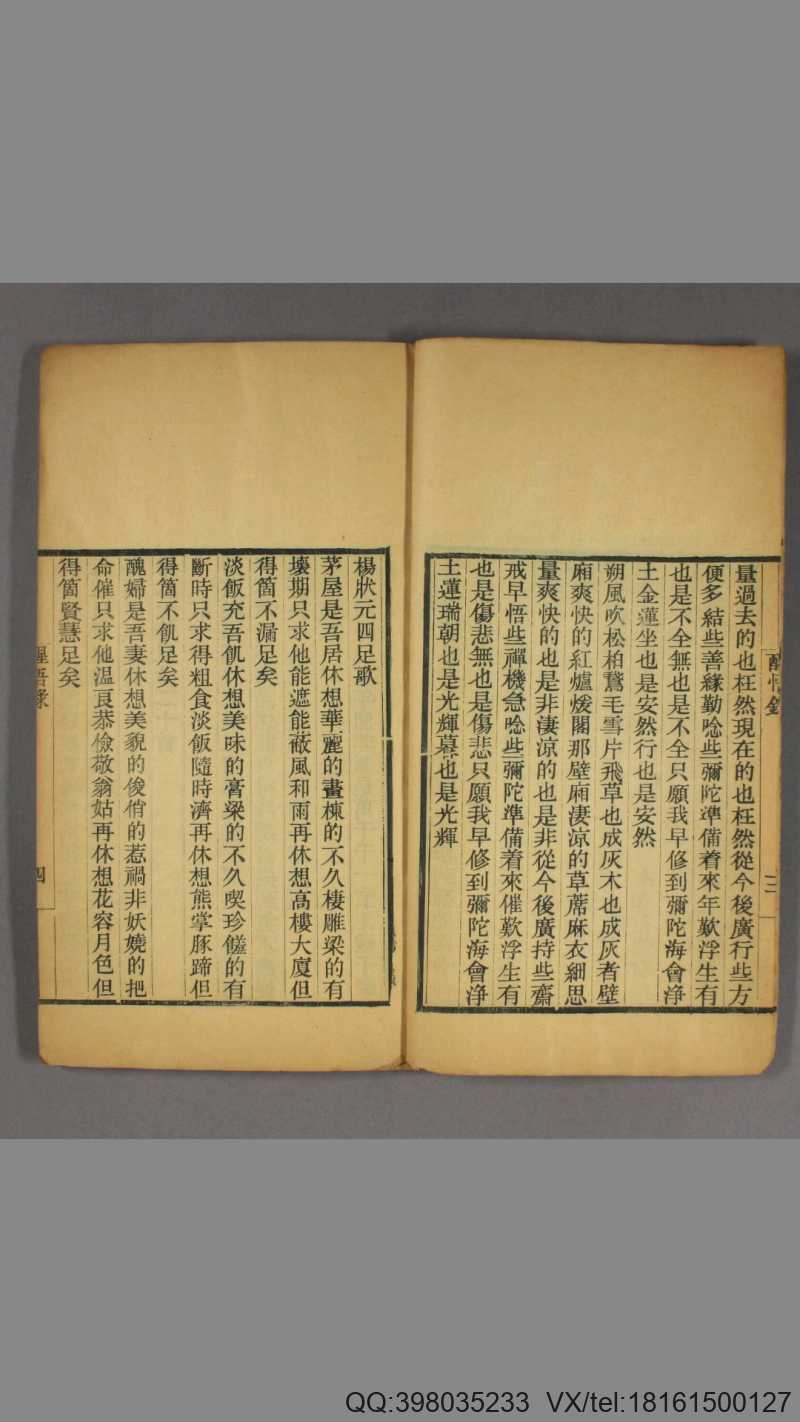 量過去的也枉然現在的也枉然從今後廣行些方
便多結些善緣勤唸些彌陀準備着來年歎浮生有
也是不全無也是不全只願我早修到彌陀海會淨
土金蓮坐也是安然行也是安然
朔風吹松柏鵞毛雪片飛草也成灰木也成灰者壁
廂爽快的紅爐煖閣那壁廂淒涼的草蓆麻衣細思
量爽快的也是非淒涼的也是非從今後廣持些齋
戒早悟些禪機急唸些彌陀準備着來催歎浮生有
也是傷悲無也是傷悲只願我早修到彌陀海會淨
土蓮瑞朝也是光輝暮也是光輝
三
楊狀元四足歌
茅屋是吾居休想華麗的畫棟的不久棲雕梁的有
壞期只求他能遮能蔽風和雨再休想高樓大廈但
得箇不漏足矣
淡飯充吾飢休想美味的膏粱的不久喫珍饈的有
斷時只求得粗食淡飯隨時濟再休想熊掌豚蹄但
得箇不飢足矣
醜婦是吾妻休想美貌的俊俏的惹禍非妖嬈的把
命催只求他温良恭儉敬翁姑再休想花容月色但
得箇賢慧足矣
醒悟錄
四
QQ:398035233 VX/tel:18161500127